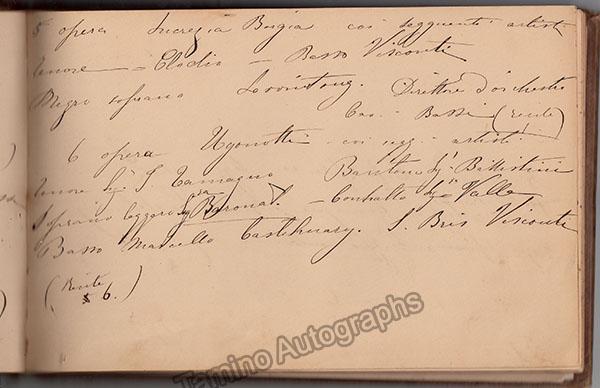 5 opera Lucrezia Borgia coi seguenti artisti
Tenore — Clodio — Basso Visconti
Mezzo soprano Direttore d'orchestra
Cav. Bassi (recite)
6 opera Ugonotti coi segg. artisti
Tenore Sig. S. Tamagno Baritono Sig. Battistini
Soprano Sig.ra — Contralto Sig.na Valle
Basso Marcello Castelmary. S. Bris Visconti
(Recite 6.)
Tamino Autographs